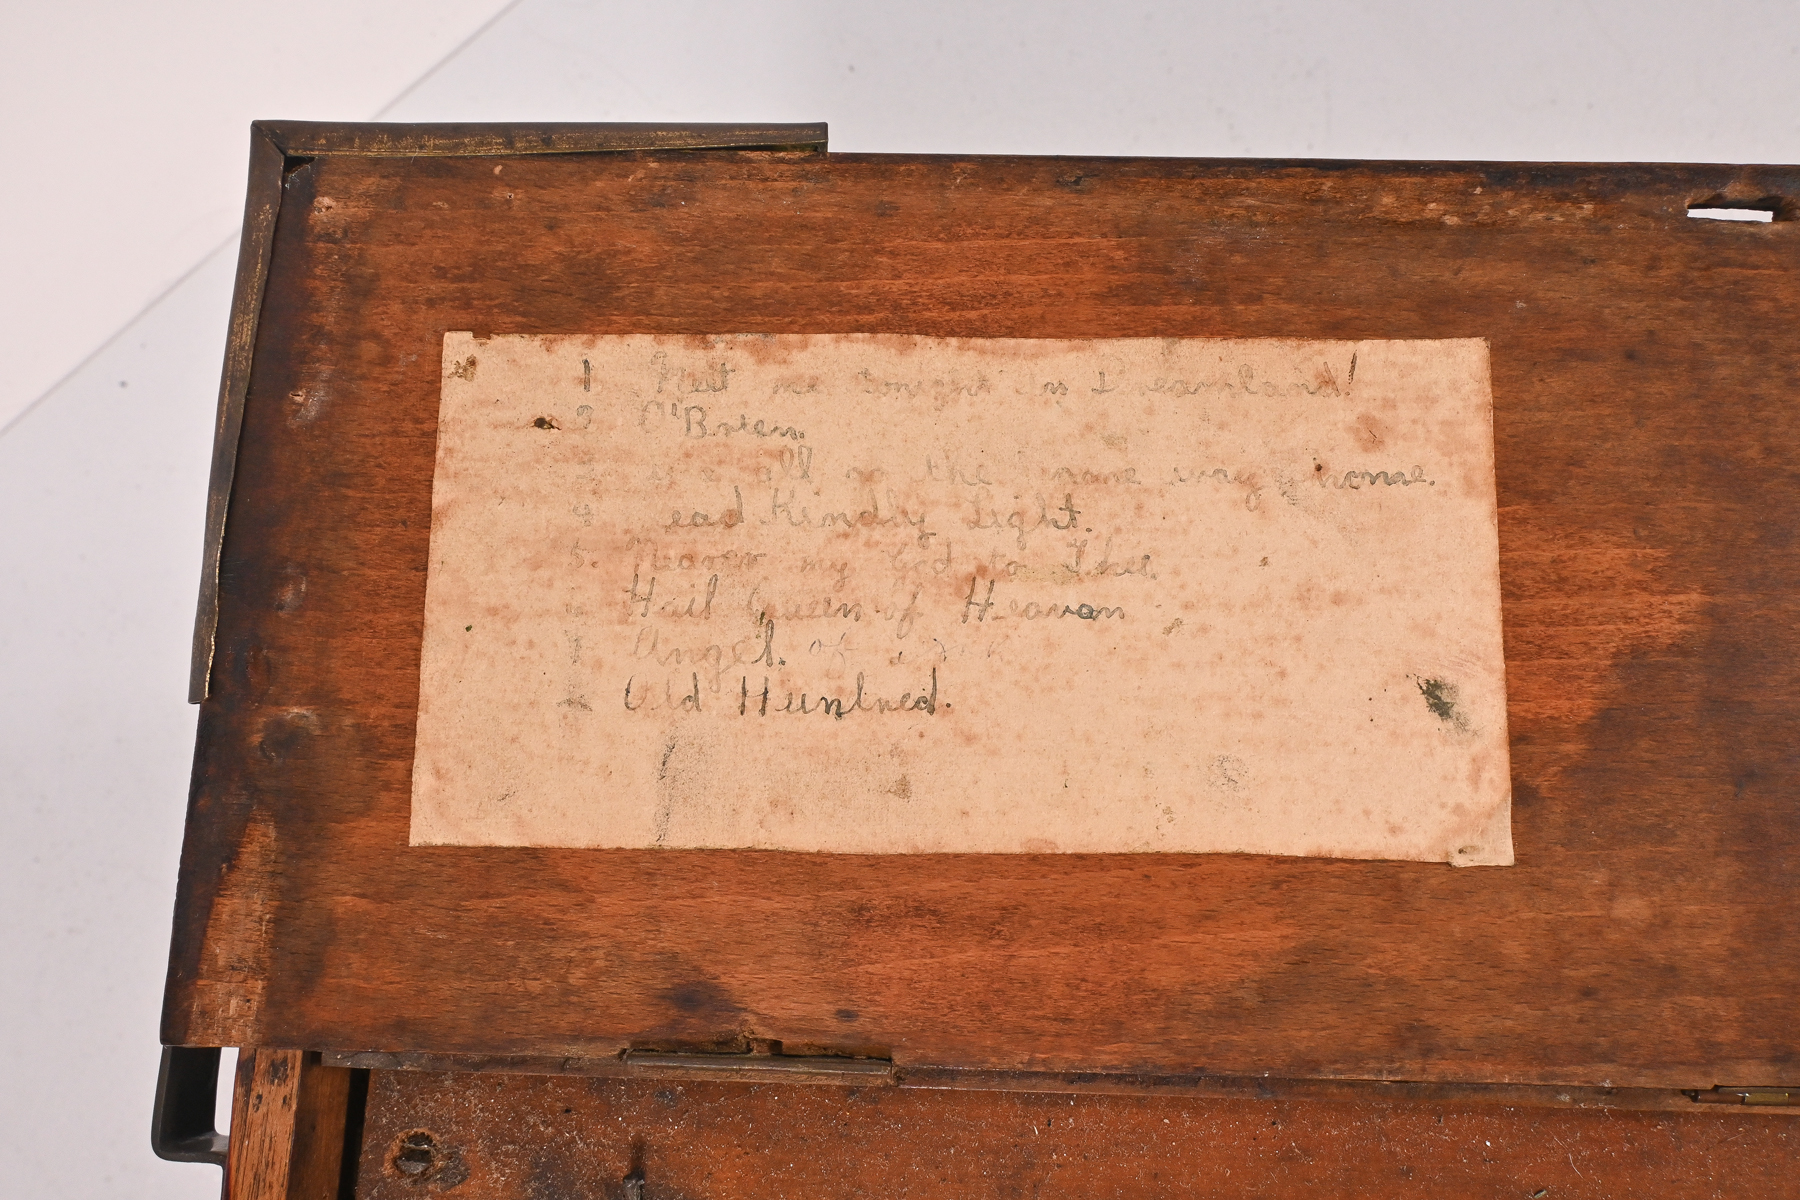 1 Meet me tonight in Dreamland!
2 O'Brien.
all the same way home.
4 Lead Kindly Light.
5. Nearer my God to Thee.
Hail Queen of Heaven
7 Angel. of
Old Hundred.